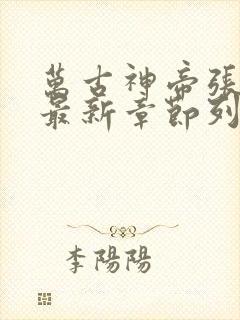 萬古神帝張
最新章節列
李陽陽